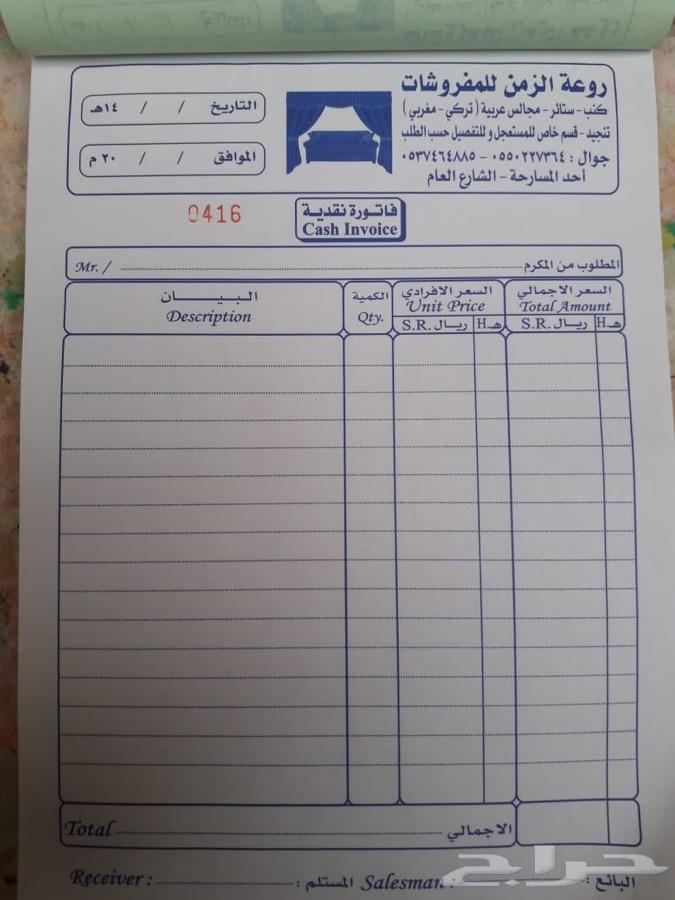 روعة الزمن للمفروشات
كنب - ستائر - مجالس عربية (تركي - مغربي)
تنجيد - قسم خاص للمستعجل و للتفصيل حسب الطلب
جوال : ٠٥٥٠٢٢٧٣٦٤ - ٠٥٣٧٤٦٤٨٨٥
أحد المسارحة - الشارع العام
التاريخ / / ١٤هـ
الموافق / / ٢٠ م
فاتورة نقدية
Cash Invoice
0416
المطلوب من المكرم Mr. /
السعر الاجمالي السعر الافرادي الكمية البيــــان
Total Amount Unit Price Qty. Description
هـ H. ريال S.R. هـ H. ريال S.R.
الاجمالي Total
البائع : Salesman : المستلم : Receiver :
حراج